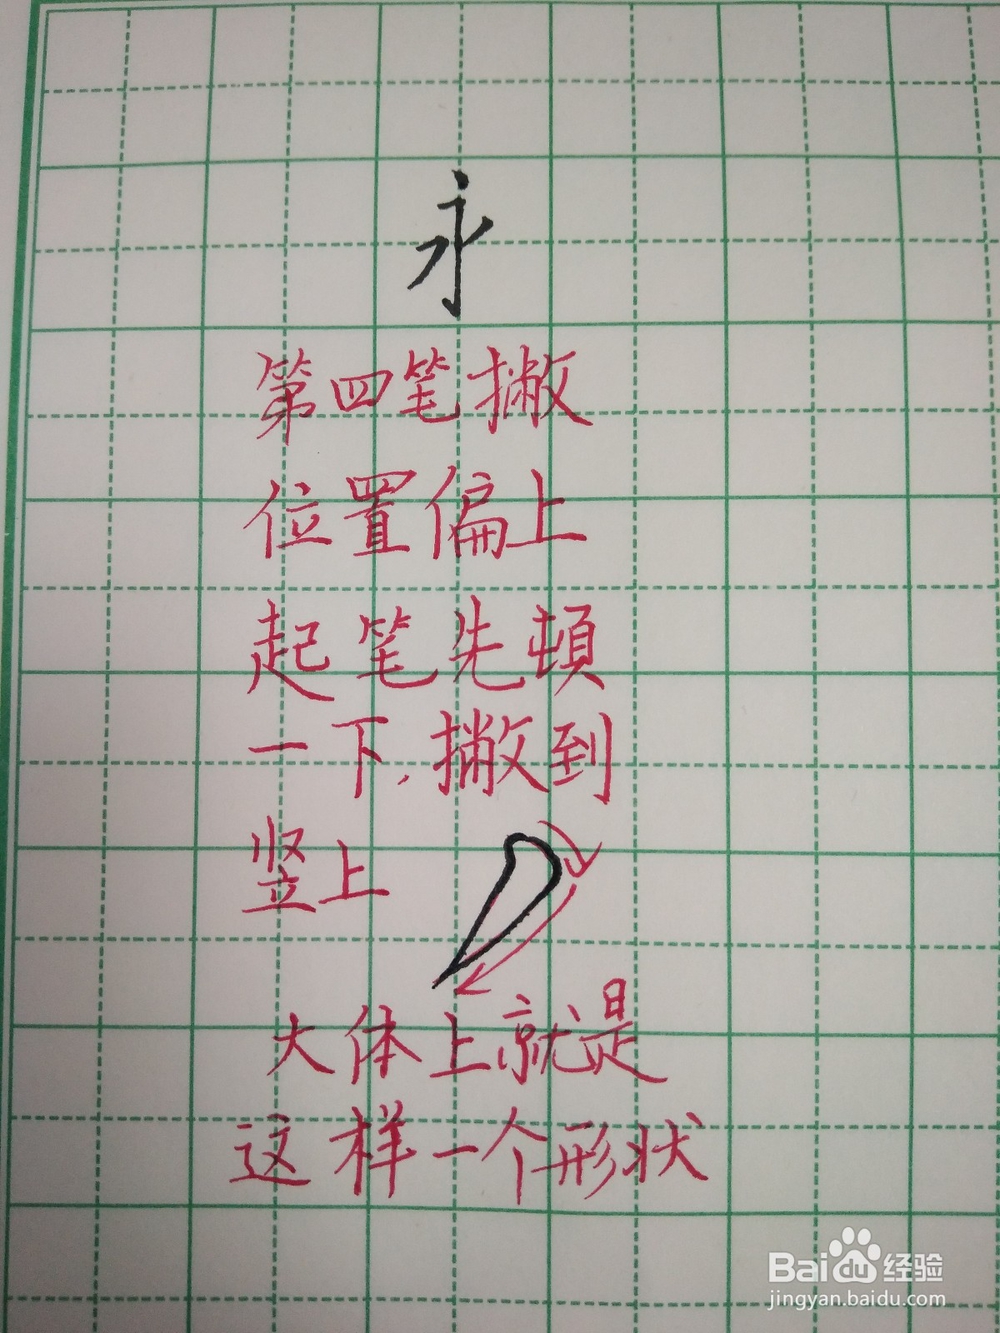 永
第四笔撇
位置偏上
起笔先頓
一下，撇到
竖上
大体上就是
这样一个形状
Baidu经验
jingyan.baidu.com